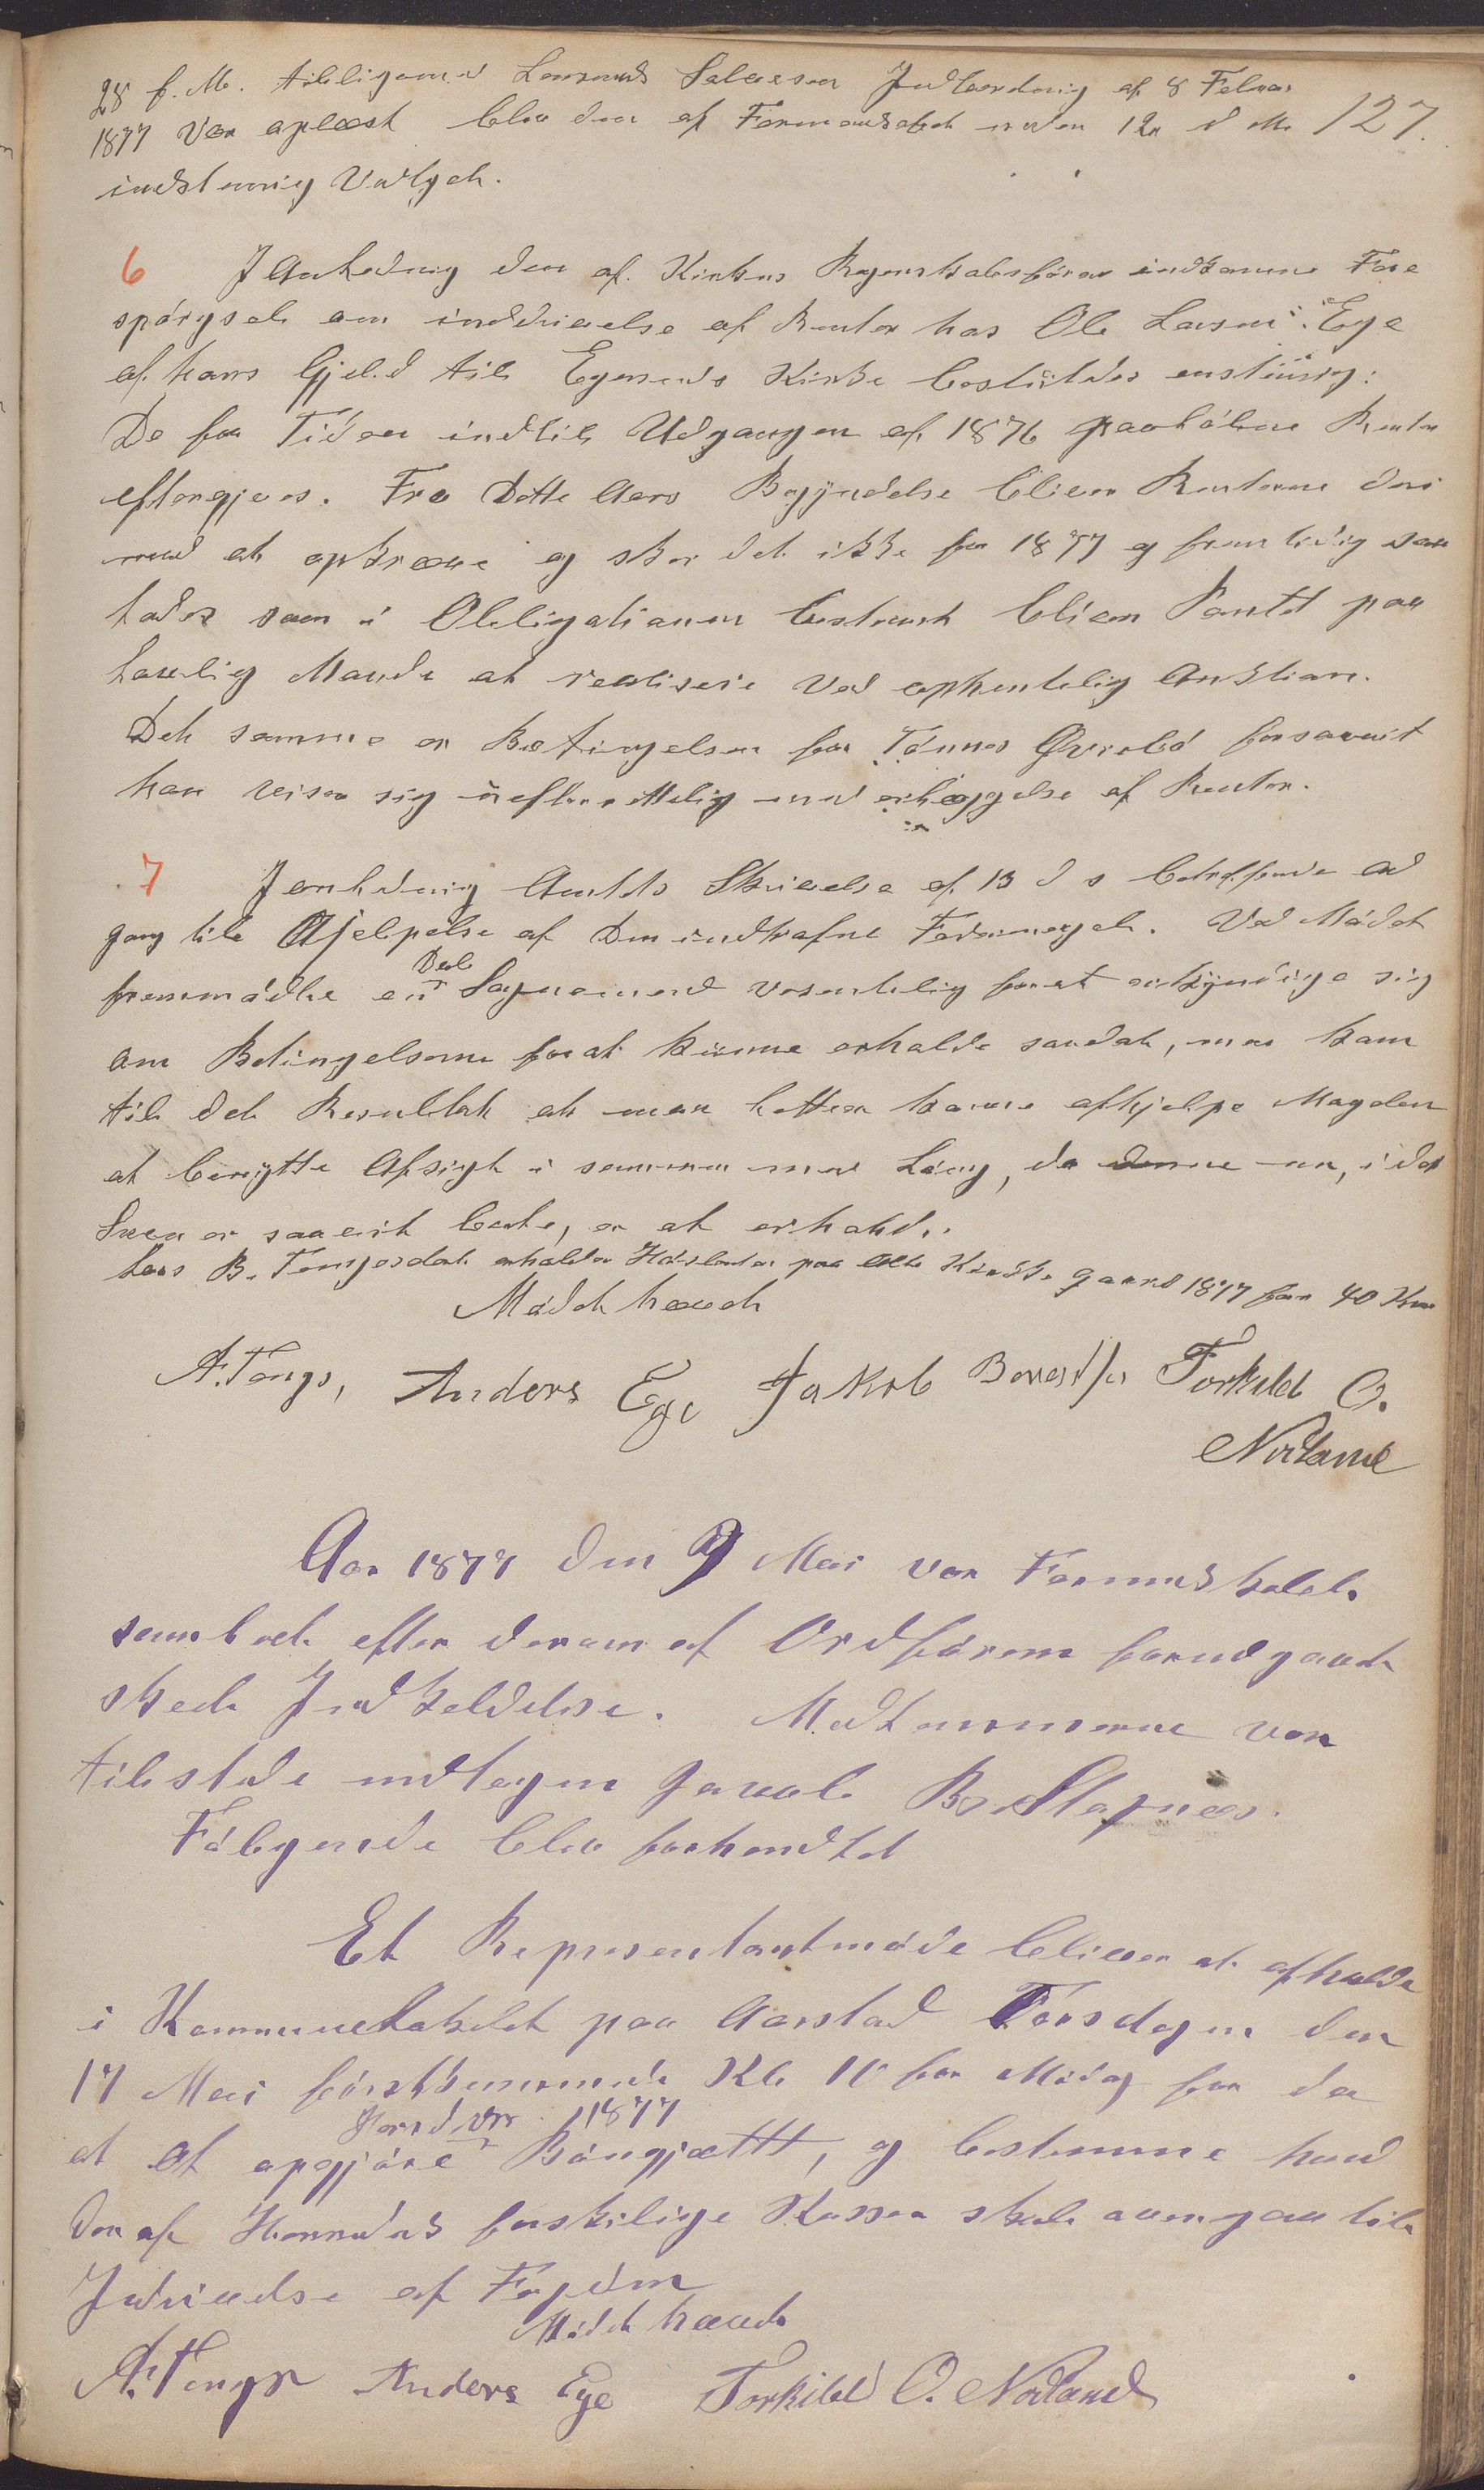 28 f. M. tilligemed Lensmand Salvesen Indberetning af 8 Februar
1877 var oplæst blev den af Formandskabet under 12 d M. 127.
indstemig Vedtget.
6 I Anledning den af Kirkens Regenskabsförer indkomne Fore
spörgsel om inddrivelse af Renter hos Ole Larsen Ege
af hans Gjeld til Egersunds Kirke besluttdes enstemig:
De for Tiden indtil Udgangen af 1876 paaløbne Renter
eftergjeves. Fra dette Aars Begyndelse bliver Renterne deri
mod at opkræve og sker det ikke for 1877 og fremtidig saa
ledes som i Obligationen bestemt bliver Pantet paa
lovelig Maade at realisere ved ophentelig Auktion.
Det samme er Betingelsen for Tönnes Qveled forsaavit
han viser sig uefterrettelig med erlæggelse af Renter.
7 I anledning Amtets Skrivelse af 13 d s betreffende Ad
gang til Afjelpelse af Den indtrafne Fodermangel. Ved Mödet
fremmödte en Deel Sognemænd vesentelig for at erkyndige sig
om Betingelserne for at kunne erholde saadat, men kom
til det Resultat at man lettere kunne afhjelpe Mangelen
at benytte Afsigt i sammen med Lyng, da denne nu, i det
Sneen er saavit borte, er at erholde.
Lars B. Tengesdal erholder Höslaatten paa Kirke gaard 1877 for 40 Kr
Mödet hævet
A. Tengs, Anders Ege Jakob Torkild O.
Nodland
Aar 1877 den 9 Mai var Formandskabet
samlet efter derom af Ordföreren forudgaaet
skede Indkaldelse. Medlemmerne var
tilstede undtagen Jacob B. Stapnes.
Fölgende blev forhandlet
Et Representantmöde bliver at afholde
i Kommunelokalet paa Aarstad Torsdagen den
17 Mai förstkommende Kl 10 for Midag for der
Herredsv. 1877
at at opgjöre Böngjættt, og bestemme hvad
der af Herredets forskilige Kasser skal overgaa til
Indrivelse af Fogden
Mödet hævet
A. Tengs Anders Ege Torkild O. Nodland